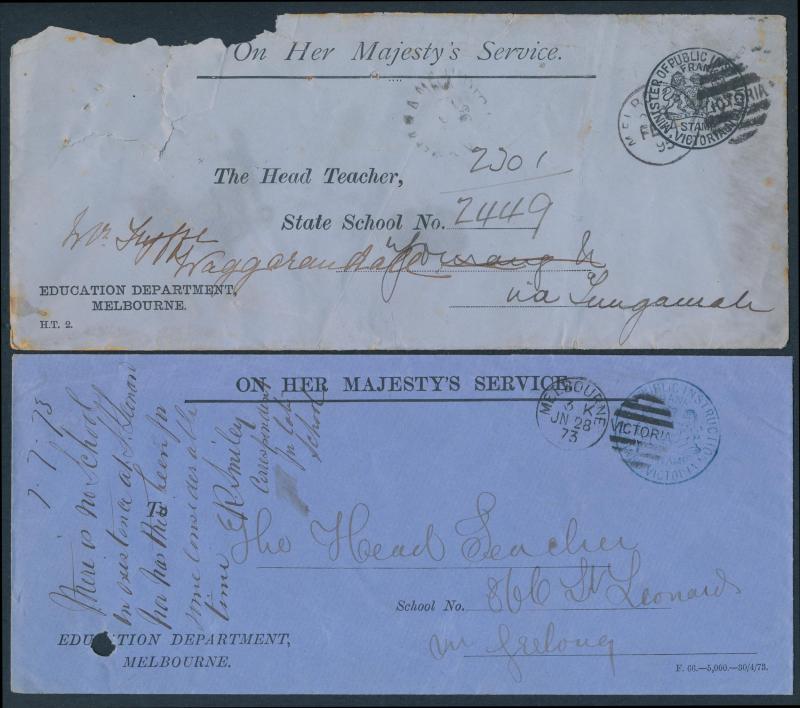 On Her Majesty's Service.
MINISTER OF PUBLIC
FRANK
STAMP
VICTORIA
VICTORIA
95
The Head Teacher,
2301
State School No. 2449
Waggarandall
via Tungamah
EDUCATION DEPARTMENT,
MELBOURNE.
H.T. 2.
ON HER MAJESTY'S SERVICE
MELBOURNE
3 K
JN 28
73
VICTORIA
PUBLIC INSTRUCTION
VICTORIA
7-7-73
There is no School
in existence at St Leonards
nor has there been for
some considerable
time E R Smiley
Correspondent
to late
School
To
The Head Teacher
School No. 866 St Leonards
nr Geelong
EDUCATION DEPARTMENT,
MELBOURNE.
F. 66.—5,000.—30/4/73.